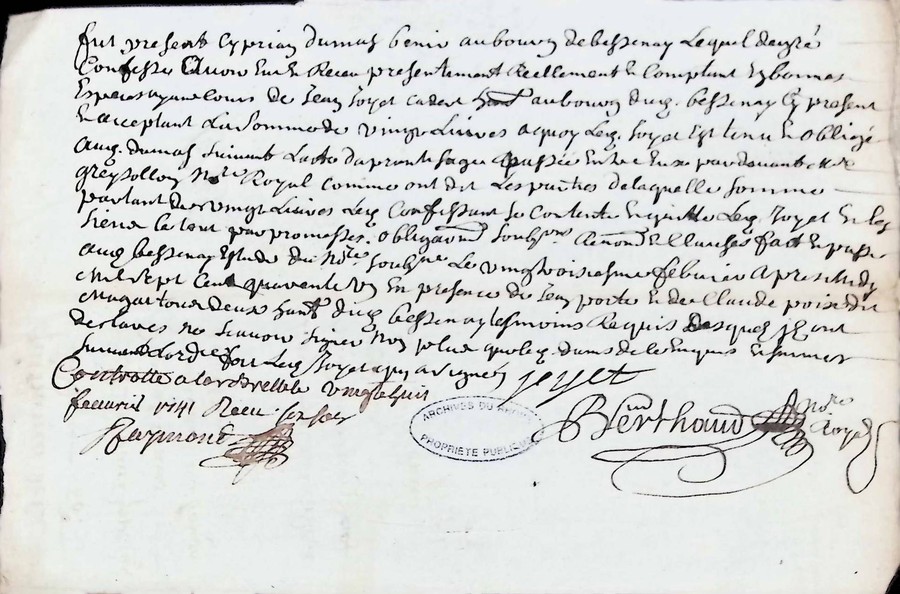 fut present Cyprian dumas benis au bourg de bessenay Lequel de gré
Confesse avoir Eu et Receu presentement Reellement et Comptant En bonnes
Especes ayant cours de Jean Joyet cadet hant au bourg dud. bessenay Cy present
Et acceptant La Somme de vingt Livres a quoy Led. Joyet Est tenu et obligé
aud. dumas suivant Lacte daprentissage passée Entre Eux par devant Me
greysollon Nore Royal comme ont dit Les parties de laquelle somme
partant de vingt Livres Led. Confessant Se Contente En quitte Led. Joyet Et les
siens Le tout par promesses. obligaons soubms Renons Et Clauses fait Et passé
aud. bessenay Estude du Nore soubsne Le vingt troisiesme febvrier apres midy
Mil Sept Cent quarante un En presence de Jean porte Et de Claude poisat
tous deux hants dud. bessenay tesmoins Requis
declarés ne scavoir signer Non plus que led. dumas de ce Enquis Et sommés
suivant Lordre fort Led. Joyet qui a signé
joyet
Controllé a larbrelle Le vingt
fevrier 1741 Receu six sols
Raymond
Berthaud Nore
Royal
ARCHIVES DU RHÔNE
PROPRIÉTÉ PUBLIQUE